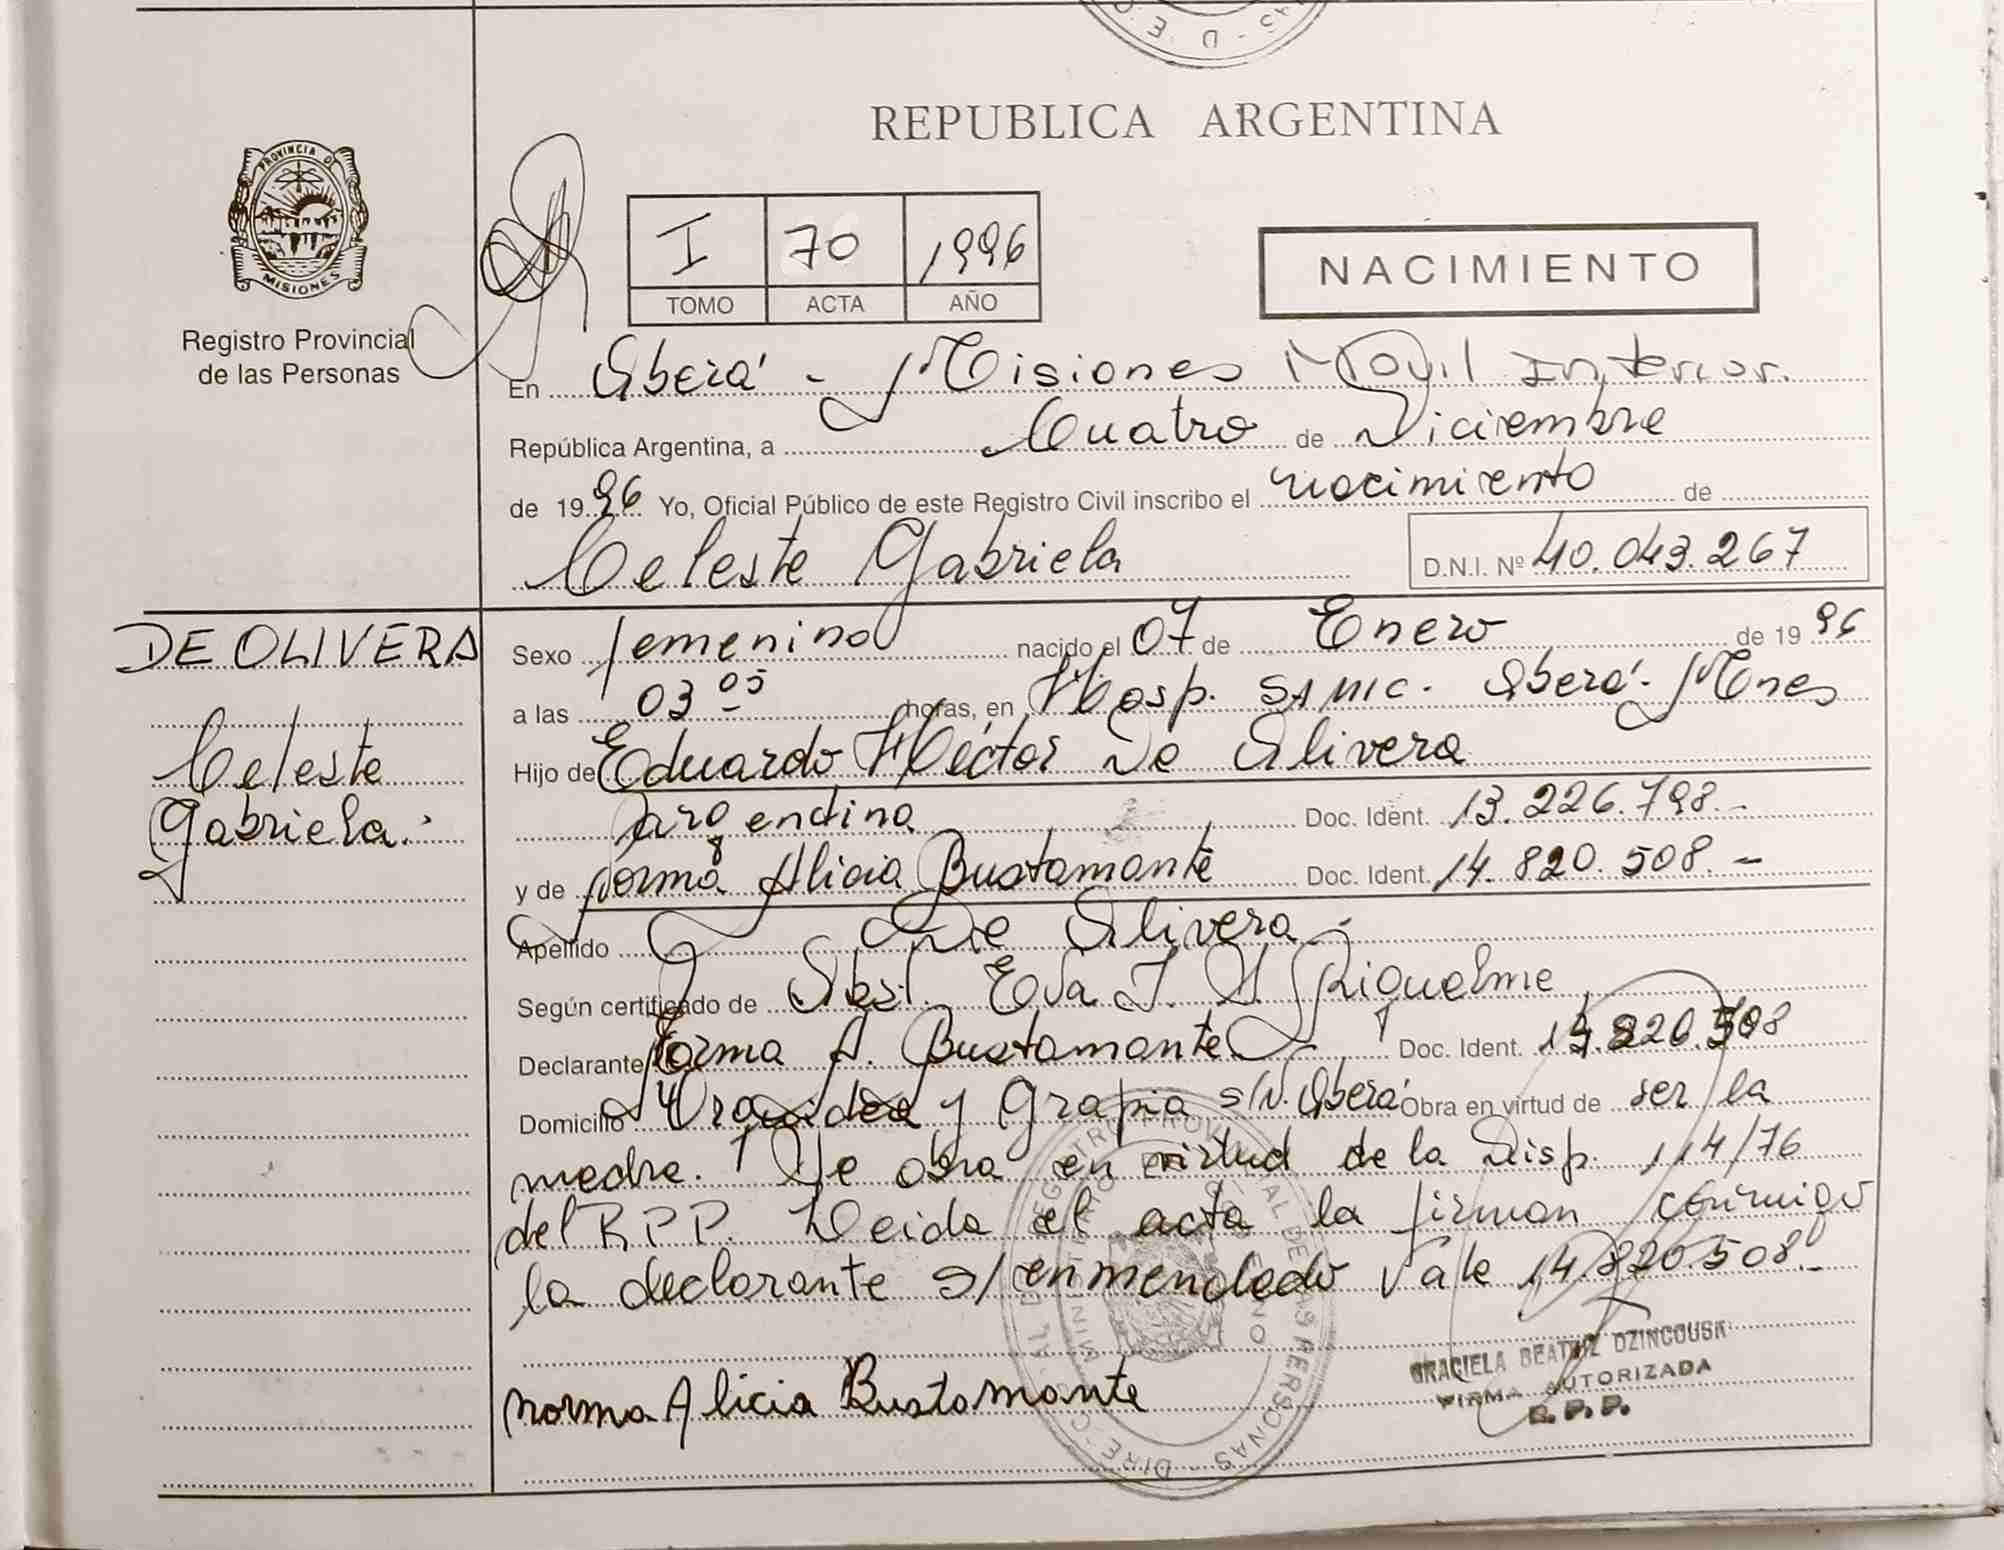 REPUBLICA ARGENTINA
PROVINCIA DE
MISIONES
Registro Provincial
de las Personas
I 70 1996
TOMO ACTA AÑO
NACIMIENTO
En Oberá - Misiones Móvil Interior.
República Argentina, a Cuatro de Diciembre
de 1996 Yo, Oficial Público de este Registro Civil inscribo el nacimiento de
Celeste Gabriela D.N.I. Nº 40.043.267
DE OLIVERA
Celeste
Gabriela.
Sexo femenino nacido el 07 de Enero de 1996
a las 03 05 horas, en Hosp. SAMIC. Oberá - Mnes
Hijo de Eduardo Héctor De Olivera
argentino Doc. Ident. 13.226.798.-
y de Norma Alicia Bustamante Doc. Ident. 14.820.508.-
Apellido De Olivera -
Según certificado de Obst. Eva J. Riquelme
Declarante Norma A. Bustamante Doc. Ident. 14.820.508
Domicilio y Grapia S/N. Oberá Obra en virtud de ser la
madre. Se obra en virtud de la Disp. 114/76
del R.P.P. Leida el acta la firman conmigo
la declarante s/enmendado Vale 14.820.508.-
GRACIELA BEATRIZ DZINCOUSK
FIRMA AUTORIZADA
R. P. P.
norma Alicia Bustamante